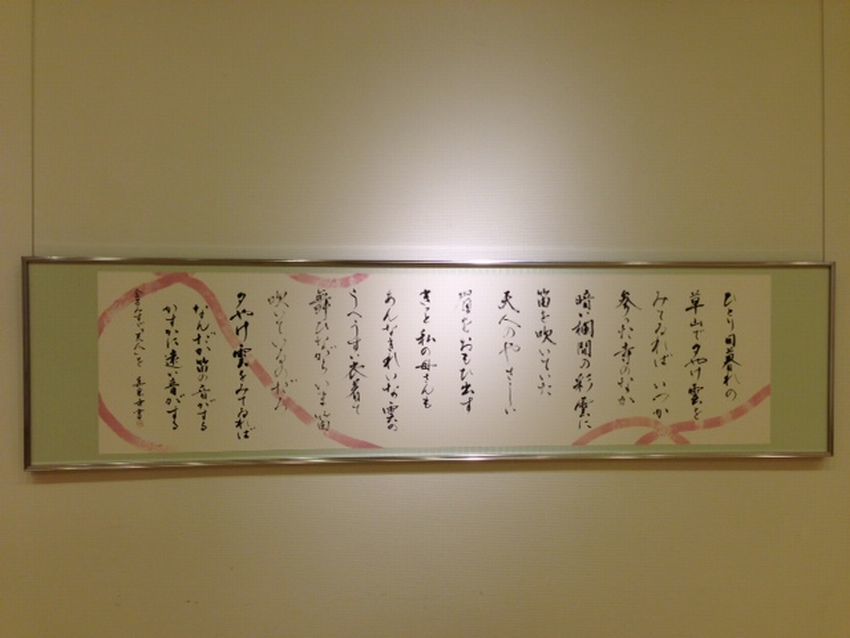 ひとり日暮れの
草山で夕やけ雲を
みてゐれば いつか
参った寺のなか
暗い欄間の彩雲に
笛を吹いてた
天人のやさしい
眉をおもひ出す
きっと私の母さんも
あんなきれいな雲の
うへうすい衣着て
舞ひながらいま笛
吹いているのだろ
夕やけ雲をみてゐれば
なんだか笛の音がする
かすかに遠い音がする
金子みすゞ 天人 を
書